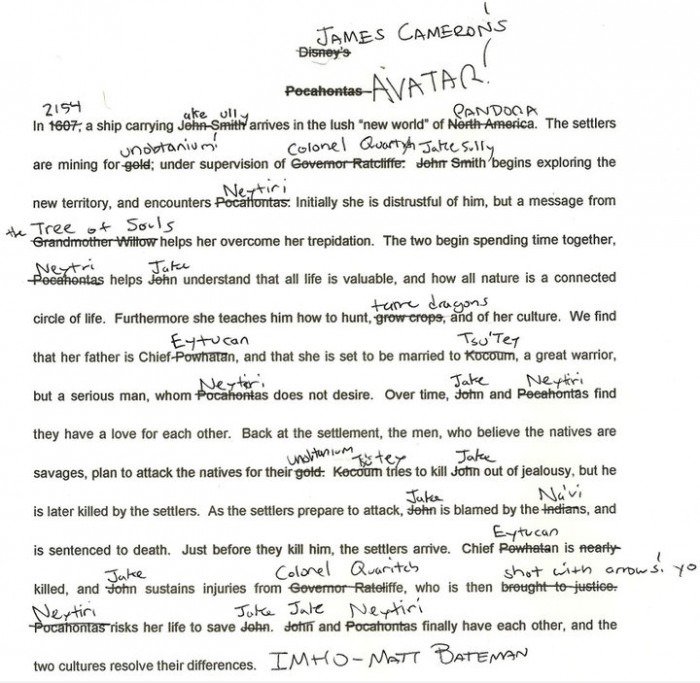 JAMES CAMERON'S!
Disney's
Pocahontas AVATAR!
2154 ake ully PANDORA
In 1607, a ship carrying John Smith arrives in the lush "new world" of North America. The settlers
unobtanium! Colonel Jake Sully
are mining for gold, under supervision of Governor Ratcliffe. John Smith begins exploring the
Neytiri
new territory, and encounters Pocahontas. Initially she is distrustful of him, but a message from
the Tree of Souls
Grandmother Willow helps her overcome her trepidation. The two begin spending time together,
Neytri Jake
Pocahontas helps John understand that all life is valuable, and how all nature is a connected
tame dragons
circle of life. Furthermore she teaches him how to hunt, grow crops, and of her culture. We find
Eytucan Tsu'Tey
that her father is Chief Powhatan, and that she is set to be married to Kocoum, a great warrior,
Neytiri Jake Neytiri
but a serious man, whom Pocahontas does not desire. Over time, John and Pocahontas find
they have a love for each other. Back at the settlement, the men, who believe the natives are
unobtanium Ts'tey Jake
savages, plan to attack the natives for their gold. Kocoum tries to kill John out of jealousy, but he
Jake Na'vi
is later killed by the settlers. As the settlers prepare to attack, John is blamed by the Indians, and
Eytucan
is sentenced to death. Just before they kill him, the settlers arrive. Chief Powhatan is nearly
Jake Colonel Quaritch shot with arrows! yo
killed, and John sustains injuries from Governor Ratcliffe, who is then brought to justice.
Neytiri Jake Jake Neytiri
Pocahontas risks her life to save John. John and Pocahontas finally have each other, and the
two cultures resolve their differences. IMHO-MATT BATEMAN